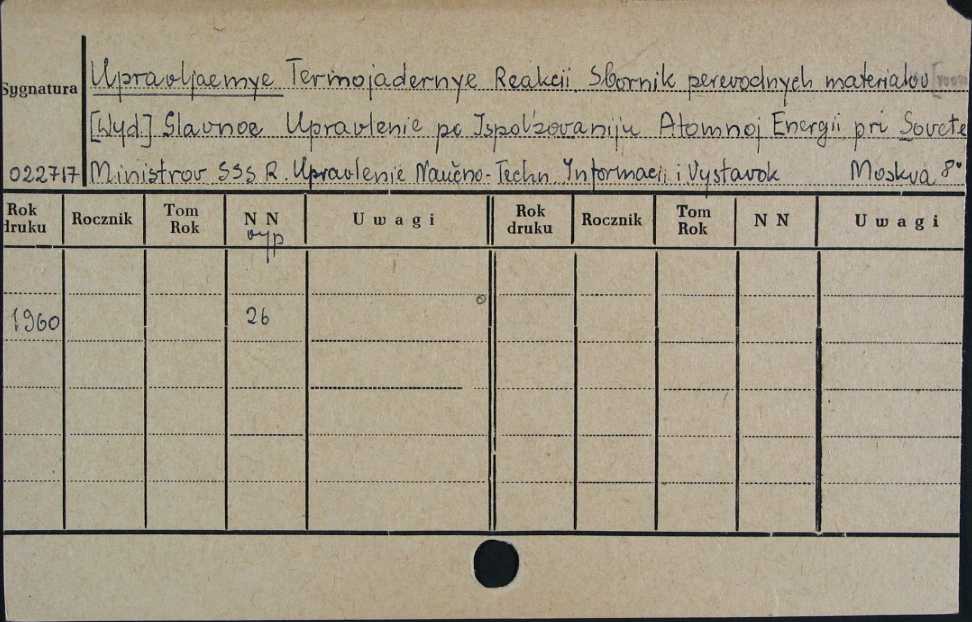 Upravljaemye Termojadernye Reakcii Sbornik perevodnych materialov
Sygnatura
[Wyd.] Glavnoe Upravlenie po Ispol'zovaniju Atomnoj Energii pri Sovete
022717 Ministrov SSSR. Upravlenie Naučno-Techn. Informacii i Vystavok Moskva 8°
Rok druku Rocznik Tom Rok N N vyp Uwagi Rok druku Rocznik Tom Rok N N Uwagi
1960 26